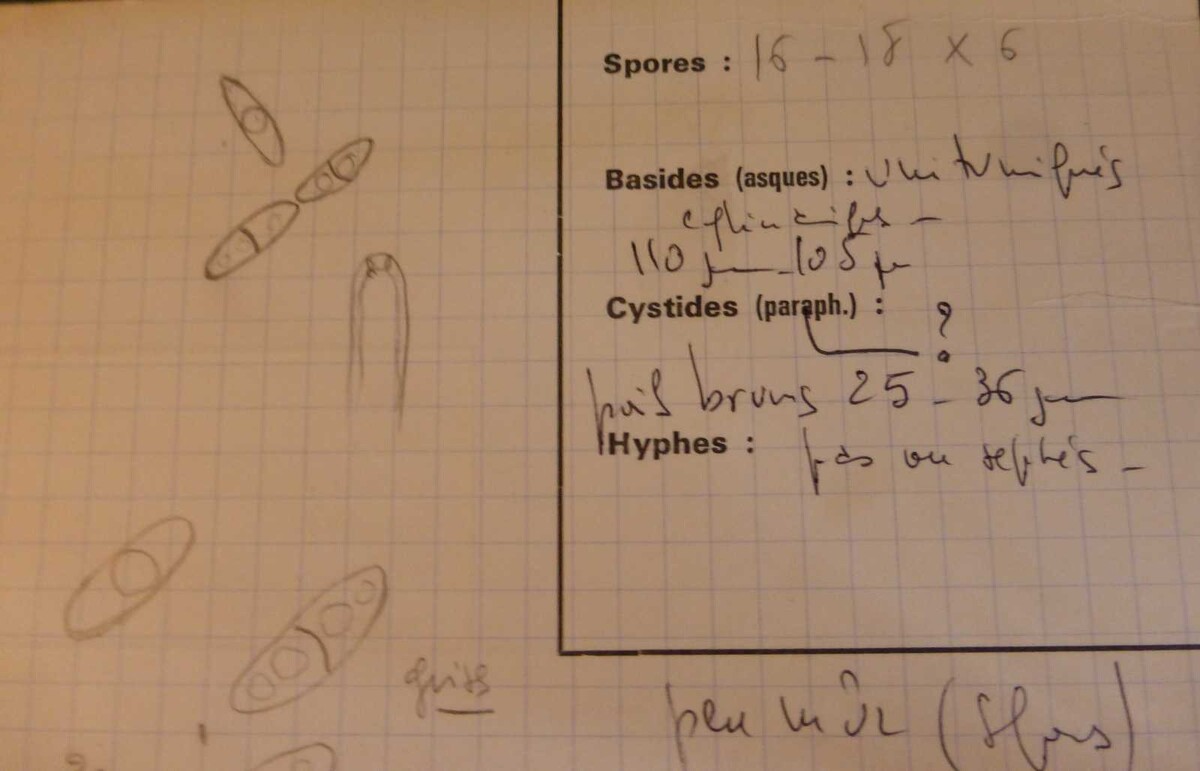 Spores : 16 - 18 x 6
Basides (asques) : unituniqués
cylindriques -
110 µm - 105 µ
Cystides (paraph.) : ?
poils bruns 25 - 36 µm
Hyphes : pas vu septés -
grises
peu mûr (Spores)